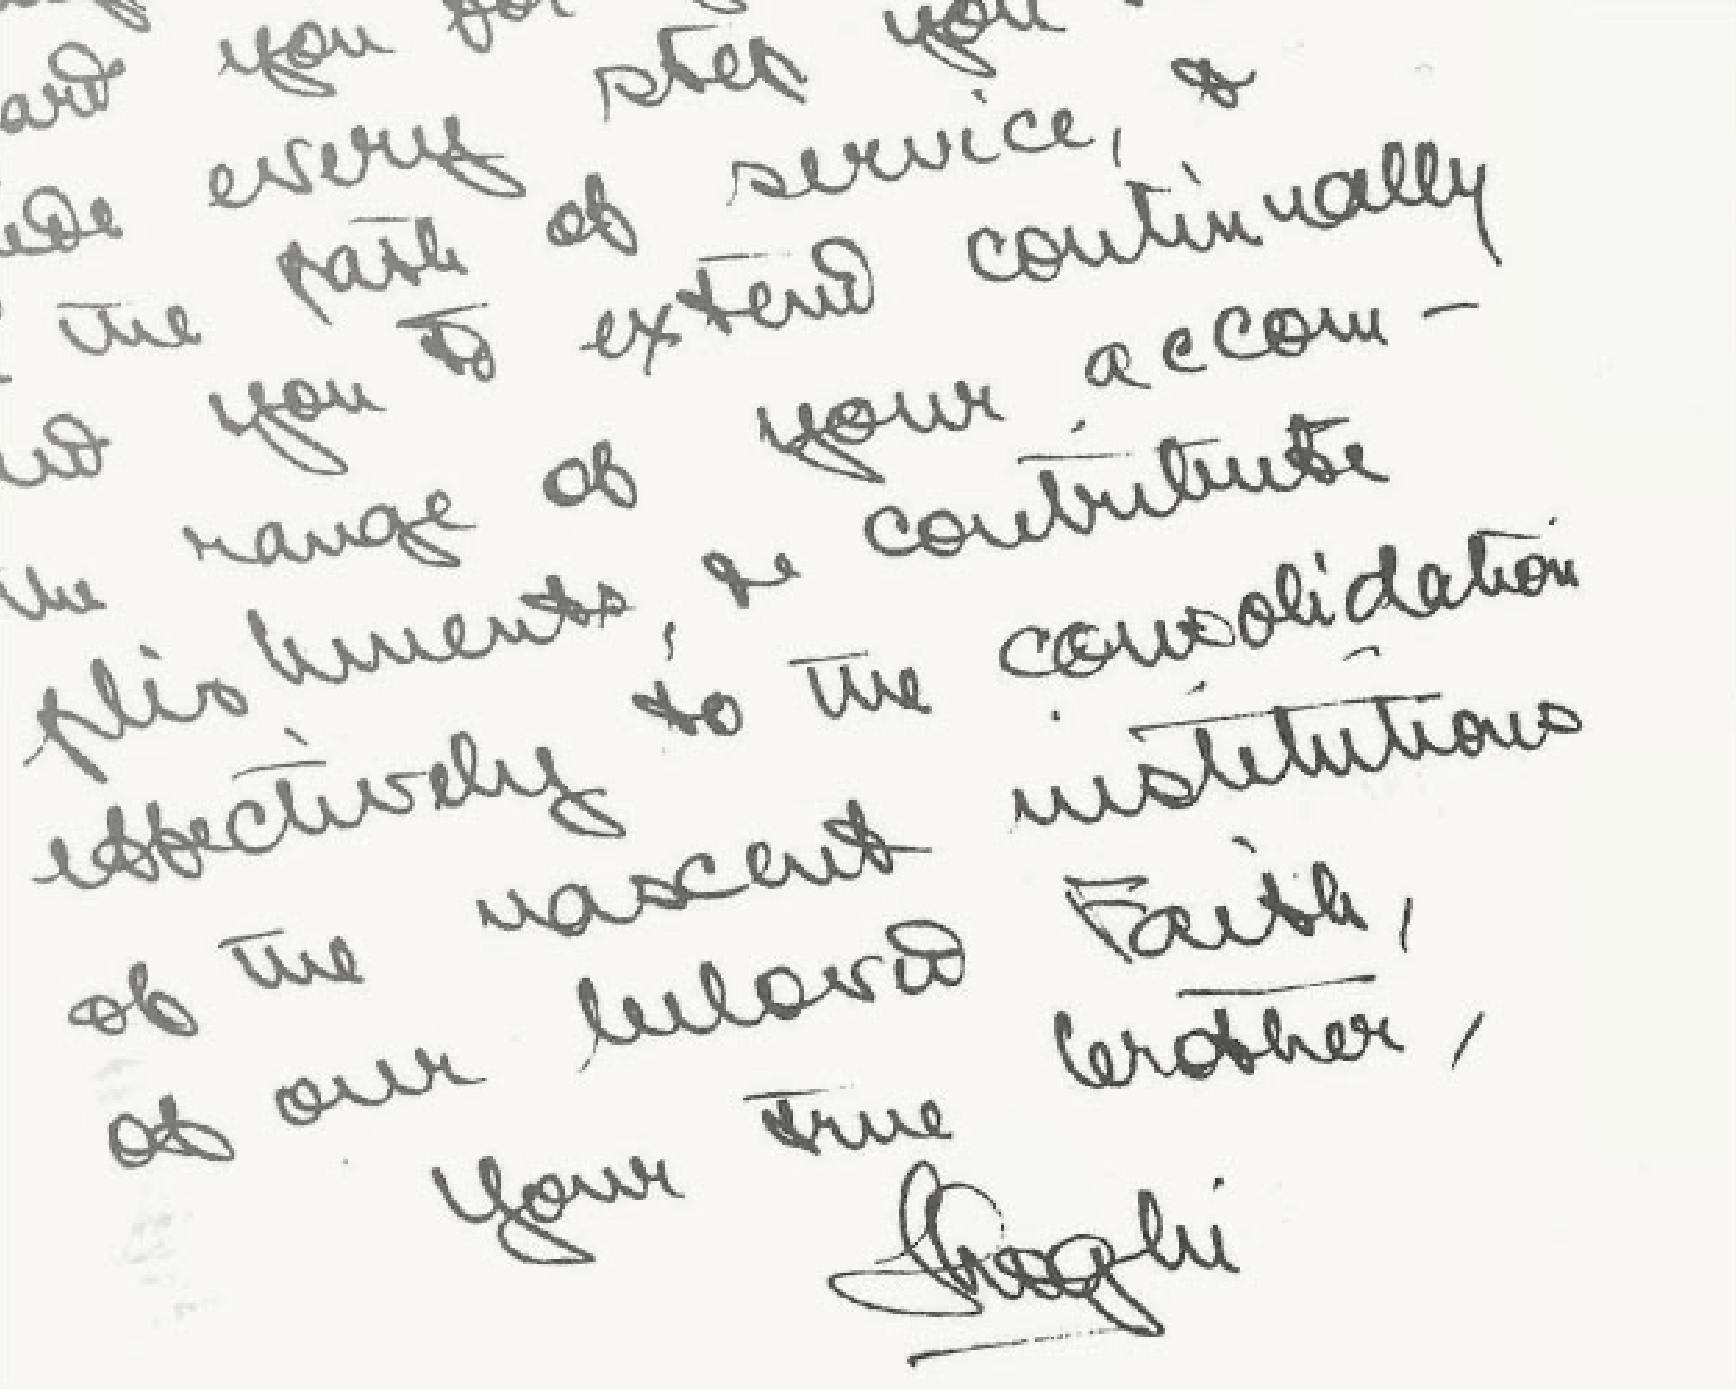 ard you for
ide every step you
the path of service, &
nd you to extend continually
the range of your accom-
plishments, & contribute
effectively to the consolidation
of the nascent institutions
of our beloved Faith,
Your true brother,
Shoghi